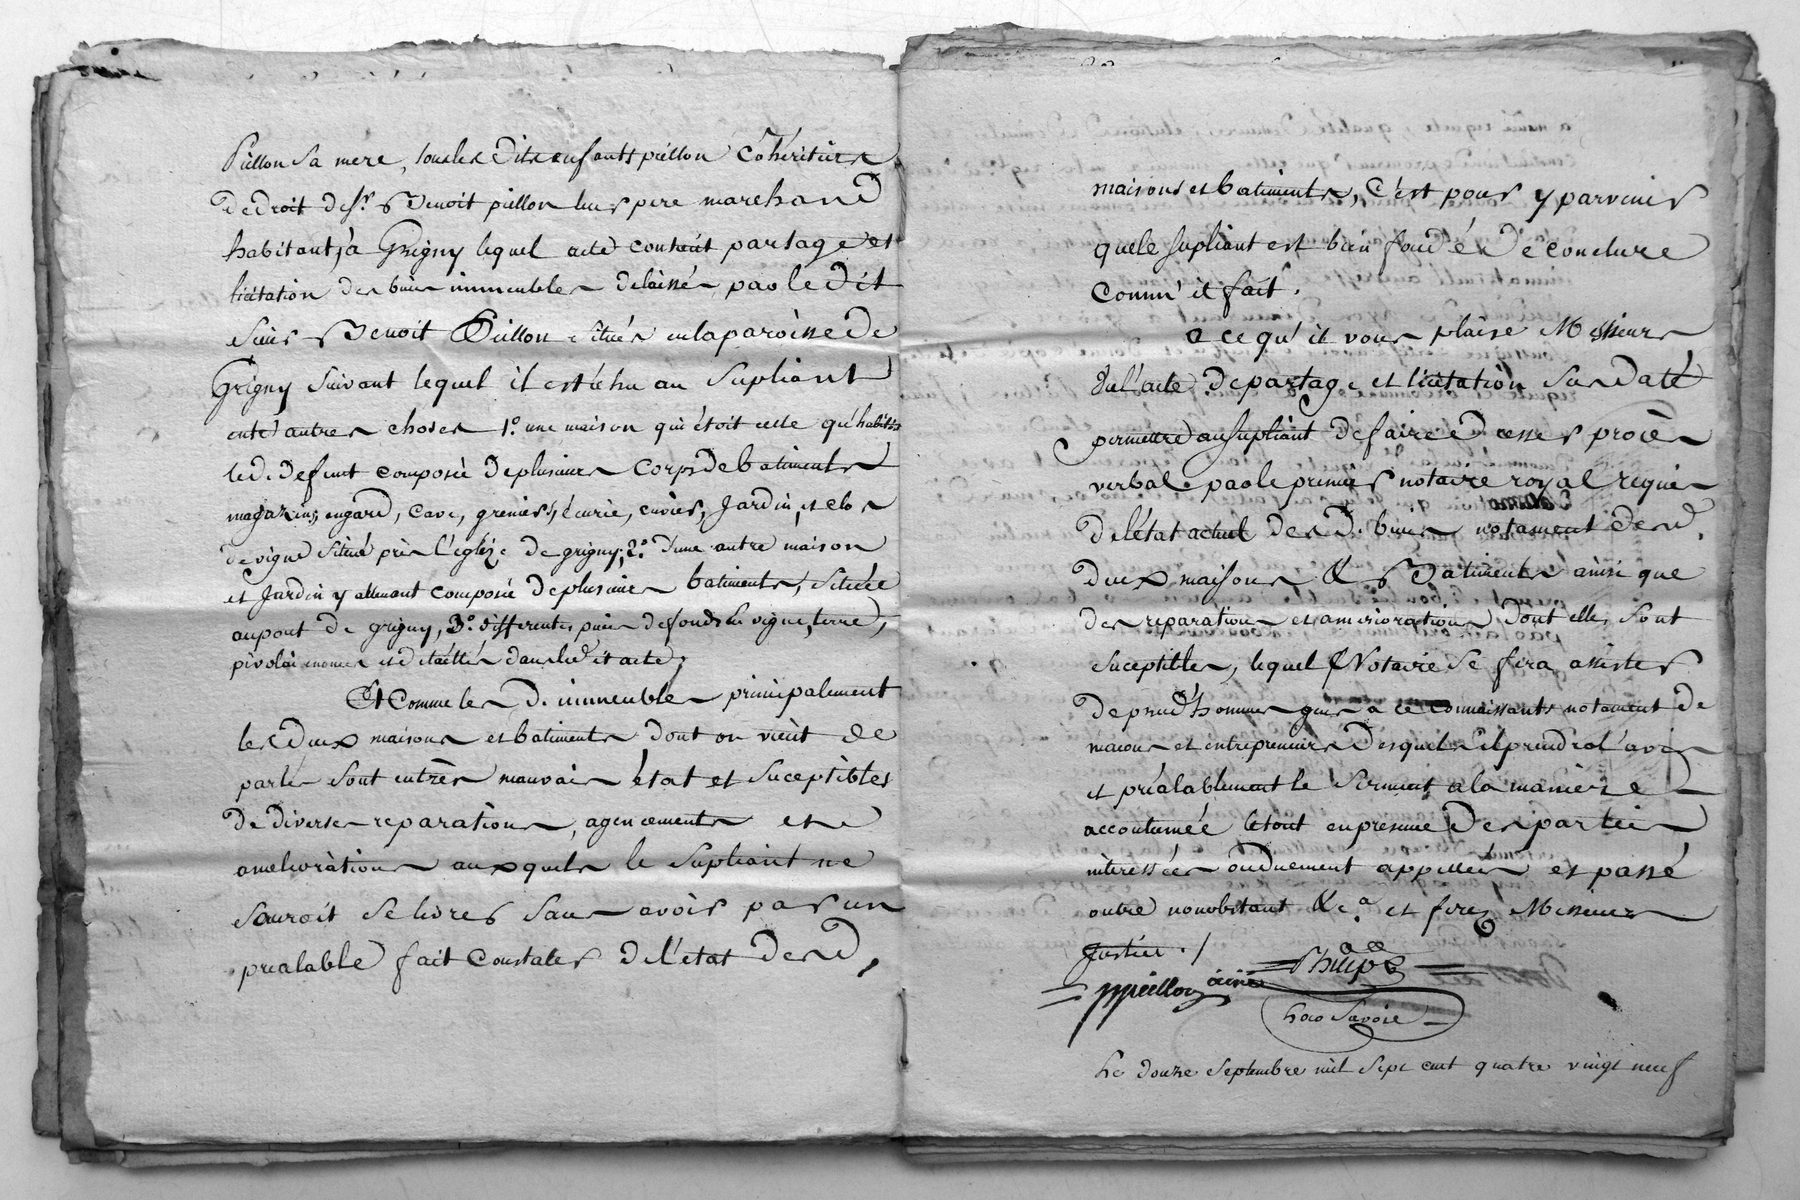 Piellon sa mere, tous les dits enfants piellon cohéritiers
de droit de Sr. Benoit piellon leur pere marchand
habitant à Grigny lequel acte contient partage et
licitation des biens immeubles delaissés par le dit
Benoit Piellon situés en la paroisse de
Grigny suivant lequel il est échu au Supliant
entre autres choses 1o. une maison qui étoit celle qu'habitoit
led. defunt composée de plusieurs corps de batiments
magazins, engard, cave, greniers, écurie, cuvier, Jardin, et clos
de vigne situé près l'eglize de grigny; 2o. d'une autre maison
et Jardin y attenant composée de plusieurs batiments, située
au pont de grigny, 3o. differentes pieces de fonds en vigne, terre,
et detaillés dans led it acte;
Et comme les d. immeubles principalement
les deux maisons et batiments dont on vient de
parler sont en très mauvais état et suceptibles
de diverses reparations, agencements et
ameliorations auxquels le Supliant ne
sauroit se livrer sans avoir par un
prealable fait constater de l'état desd.
maisons et batiments, C'est pour y parvenir
que le supliant est bien fondé de conclure
comm' il fait.
a ce qu'il vous plaise Messieurs
Vu l'acte de partage et licitation sus daté
permettre au supliant de faire dresser procès
verbal par le premier notaire royal requis
de l'état actuel des d. biens notament desd.
deux maisons & Batiments ainsi que
des reparations et ameriorations dont elles sont
suceptibles, lequel Notaire se fera assister
de prud'hommes gens a ce connaissants notament de
macons et entrepreneurs desquels il prendra l'avis
et préalablement le serment a la maniere
accoutumée le tout en presence des parties
interessées ou duement appellées et passé
outre nonobstant &c.a et ferez Messieurs
Justice ./.
piellon ainé
Phelip
Savoie
Le douze Septembre mil sept cent quatre vingt neuf